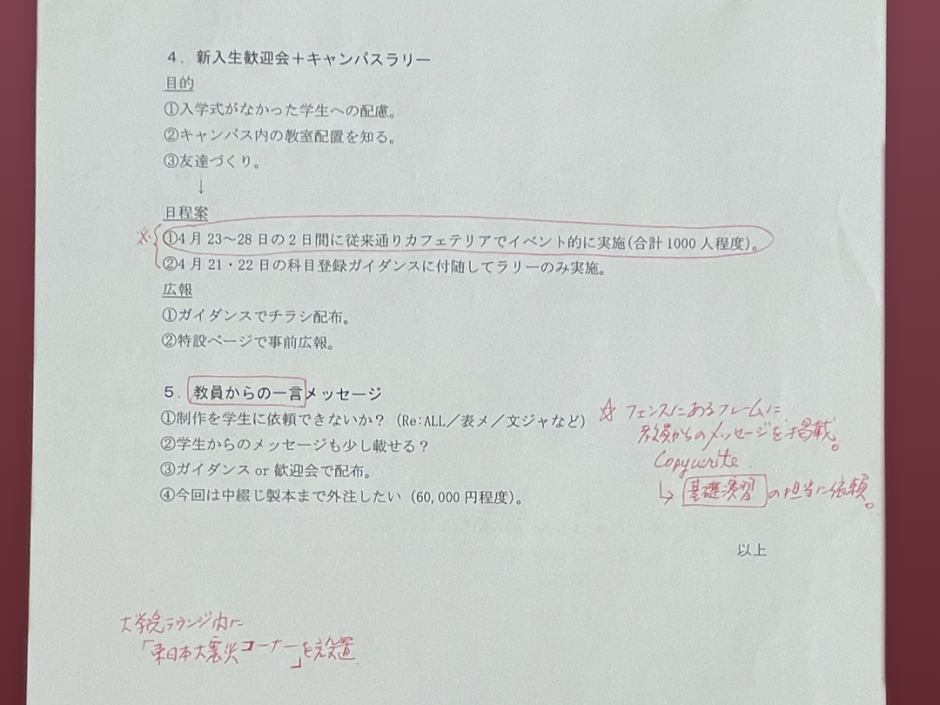 4．新入生歓迎会＋キャンパスラリー
目的
①入学式がなかった学生への配慮。
②キャンパス内の教室配置を知る。
③友達づくり。
↓
日程案
※①4月23～28日の2日間に従来通りカフェテリアでイベント的に実施(合計1000人程度)。
②4月21・22日の科目登録ガイダンスに付随してラリーのみ実施。
広報
①ガイダンスでチラシ配布。
②特設ページで事前広報。
5．教員からの一言メッセージ
①制作を学生に依頼できないか？（Re:ALL／表メ／文ジャなど）
②学生からのメッセージも少し載せる？
③ガイダンス or 歓迎会で配布。
④今回は中綴じ製本まで外注したい（60,000円程度）。
☆ フェンスにあるフレームに
教員からのメッセージを掲載。
Copywrite
↳ 基礎演習の担当に依頼。
以上
大学院ラウンジ内に
「東日本大震災コーナー」を設置